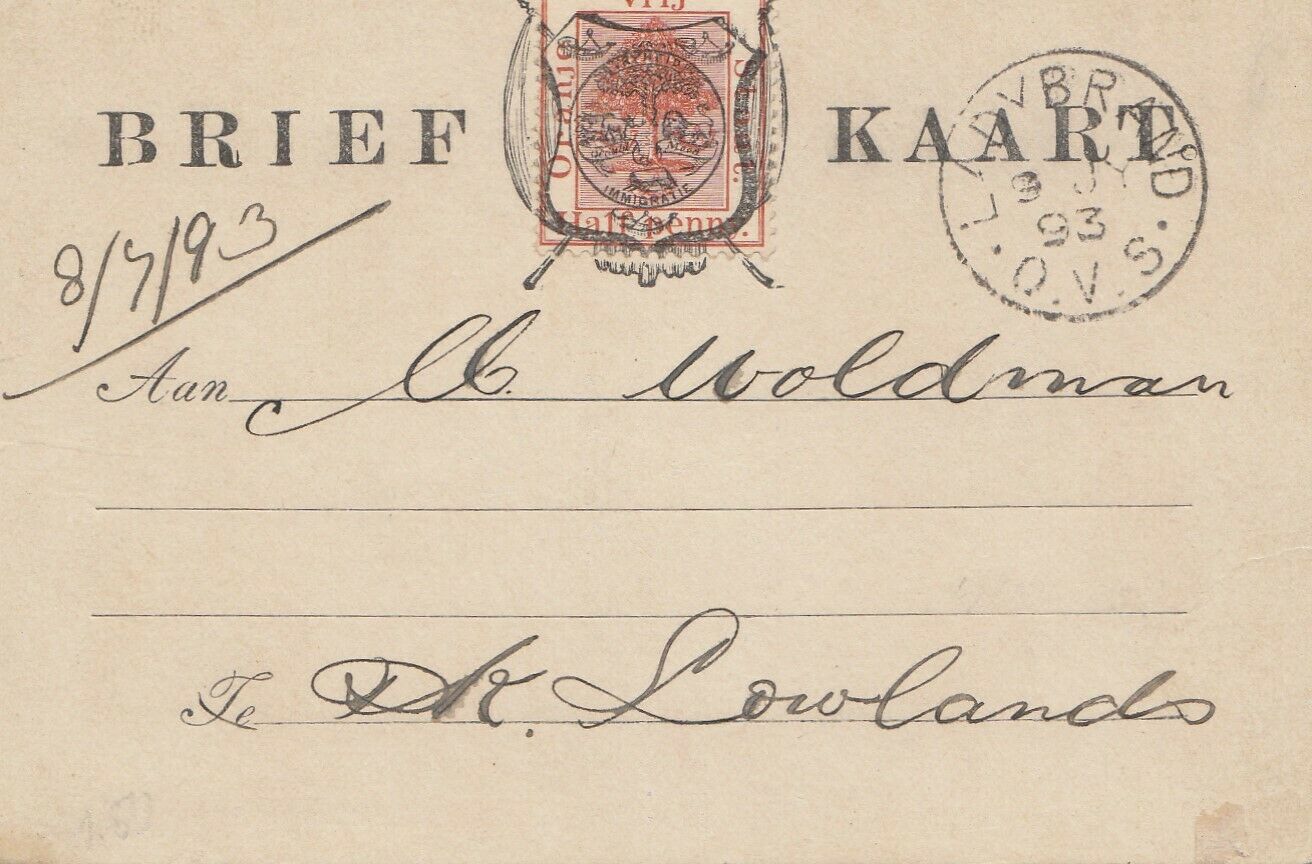 Vrij
Oranje Staat.
IMMIGRATIE
Half penny.
BRIEF KAART
LADYBRAND
9 JY
93
O.V.S.
8/7/93
Aan Woldman
Te DK. Lowlands